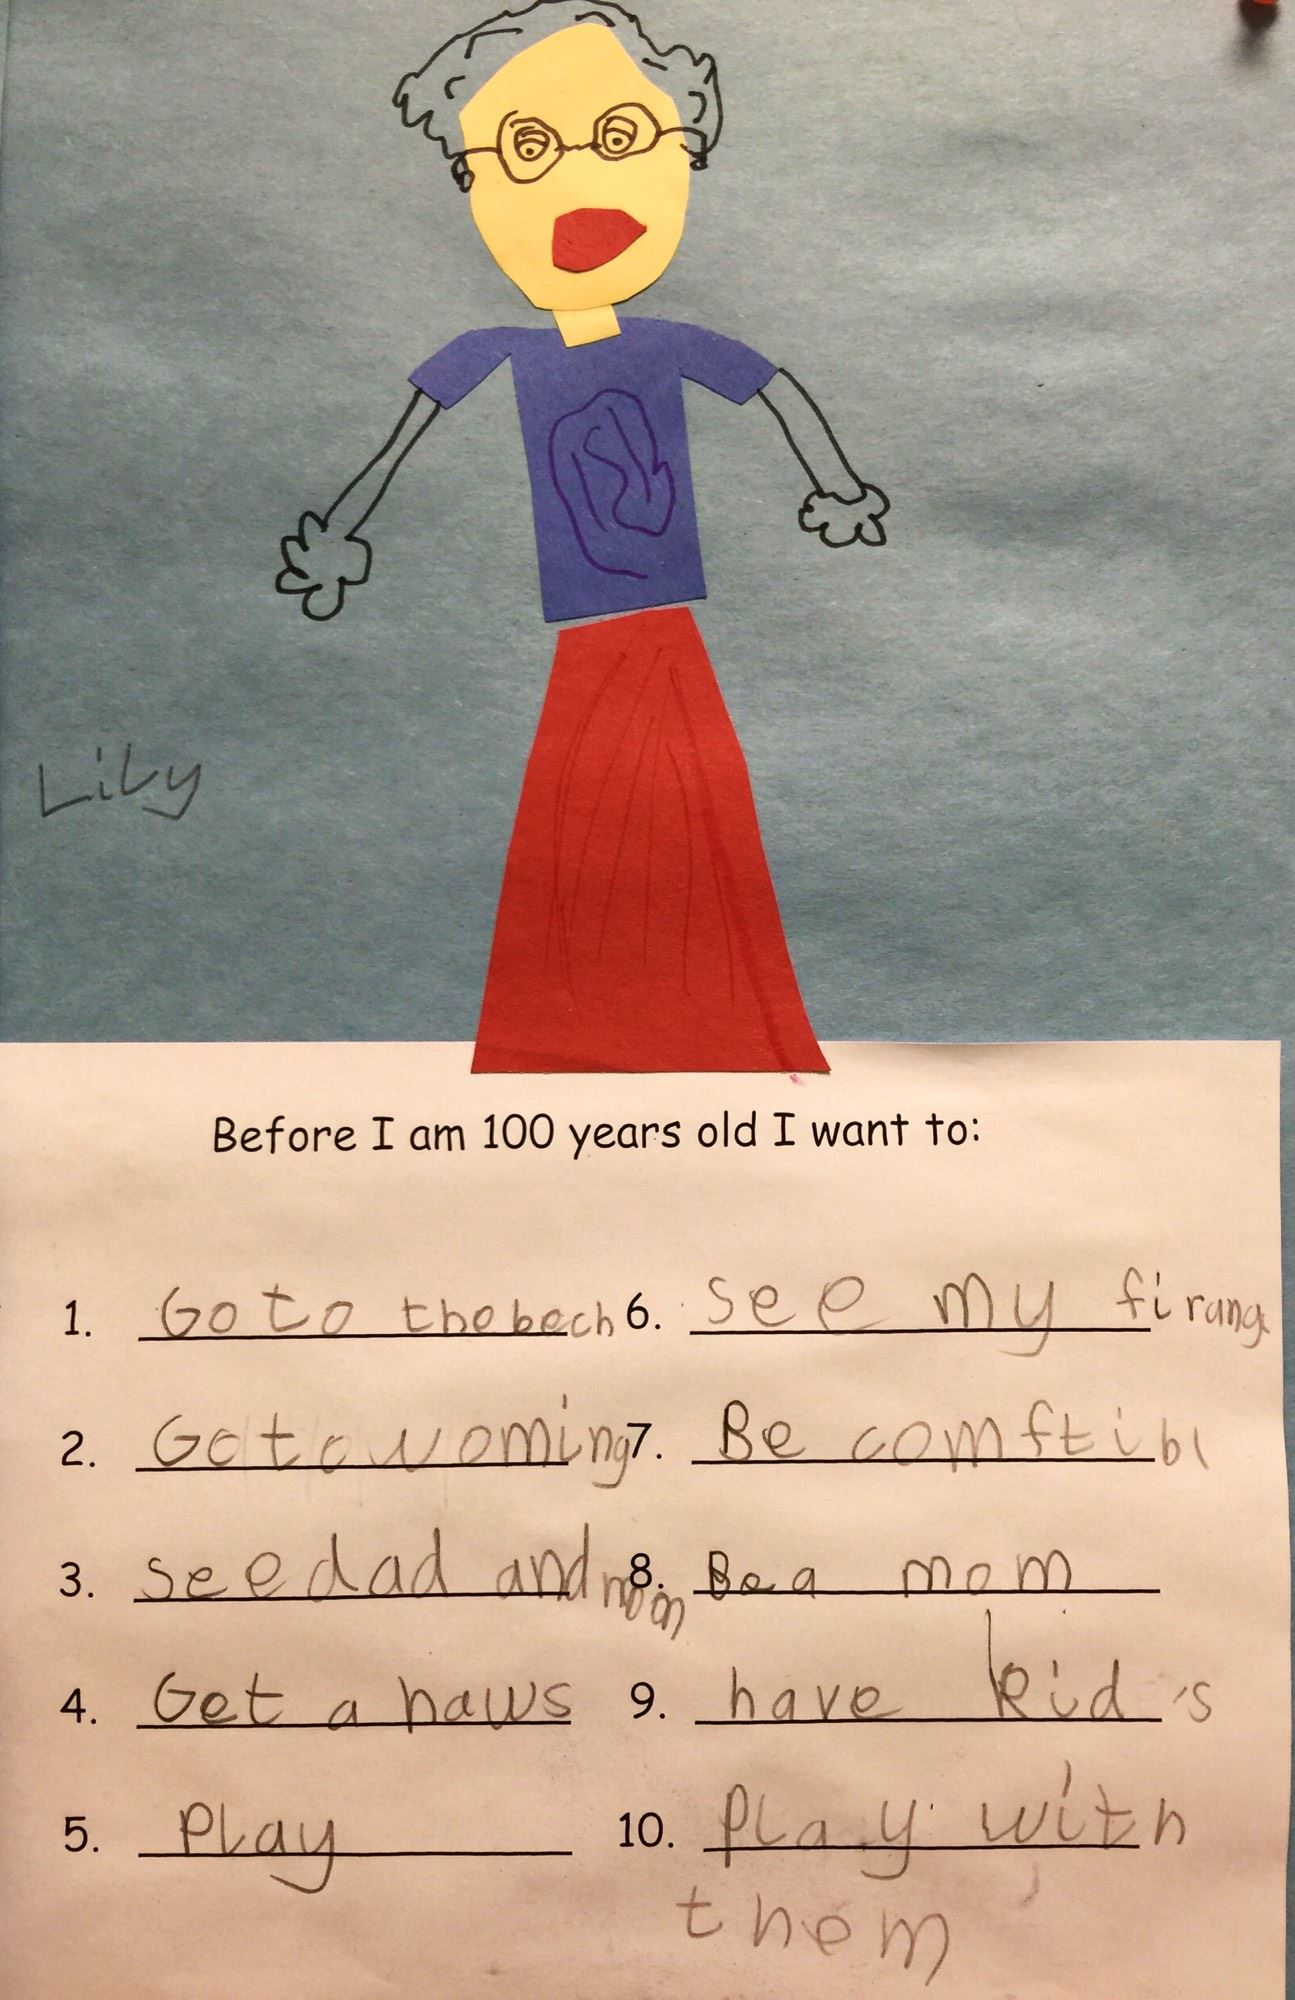 Lily
Before I am 100 years old I want to:
1. Go to the bech
2. Go to woming
3. see dad and mom
4. Get a haws
5. Play
6. see my firang
7. Be comftibl
8. Be a mom
9. have kid's
10. Play with
them